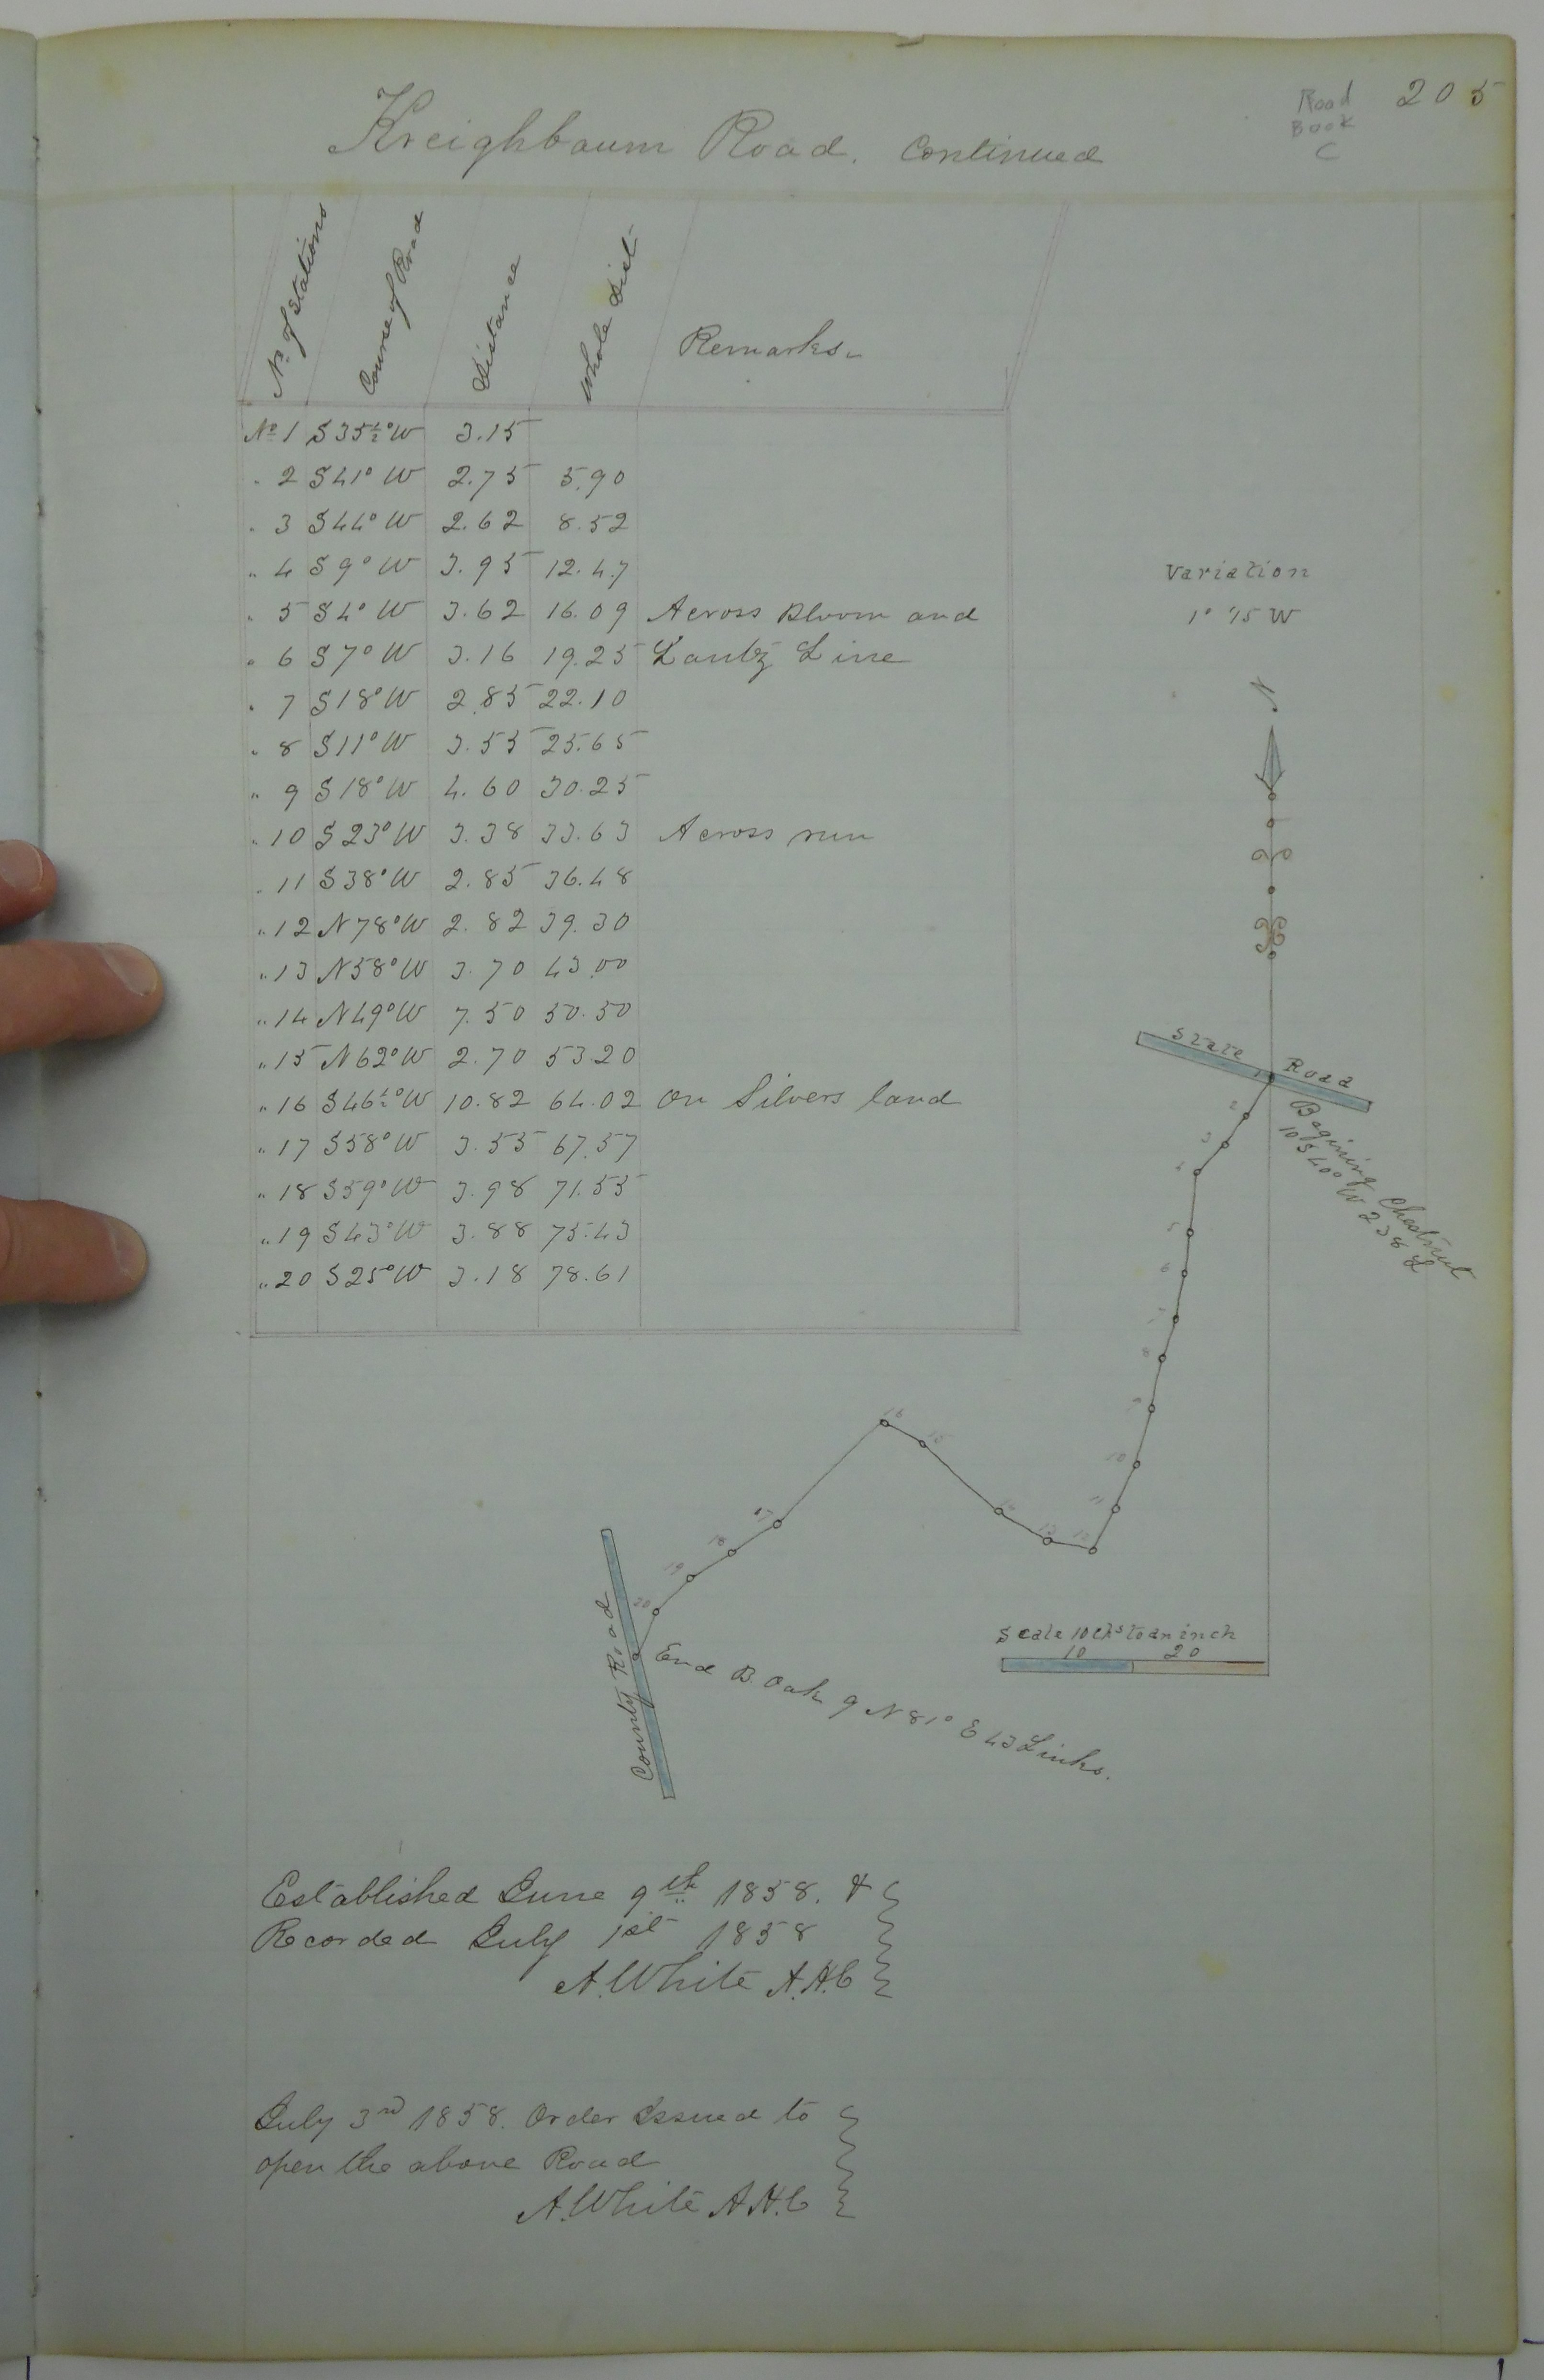 Kreighbaum Road. Continued
Road Book C
205
No. of Stations | Course of Road | Distance | Whole Dist | Remarks.
No 1 S35½°W 3.15
" 2 S41°W 2.75 5.90
" 3 S44°W 2.62 8.52
" 4 S9°W 3.95 12.47
" 5 S4°W 3.62 16.09 Across Bloom and
" 6 S7°W 3.16 19.25 Lantz Line
" 7 S18°W 2.85 22.10
" 8 S11°W 3.55 25.65
" 9 S18°W 4.60 30.25
" 10 S23°W 3.38 33.63 Across run
" 11 S38°W 2.85 36.48
" 12 N78°W 2.82 39.30
" 13 N58°W 3.70 43.00
" 14 N49°W 7.50 50.50
" 15 N62°W 2.70 53.20
" 16 S46½°W 10.82 64.02 On Silvers land
" 17 S58°W 3.55 67.57
" 18 S59°W 3.98 71.55
" 19 S43°W 3.88 75.43
" 20 S25°W 3.18 78.61
Variation
1° 75 W
N
State Road
Begining Chestnut
10 S40° W 238 L
1
2
3
4
5
6
7
8
9
10
11
12
13
14
15
16
17
18
19
20
Scale 10 chs to an inch
10 20
County Road
End B. Oak 9 N81° E 43 Links.
Established June 9th 1858. &
Recorded July 1st 1858
A. White A.H.C
July 3rd 1858. Order Issued to
open the above Road
A. White A.H.C